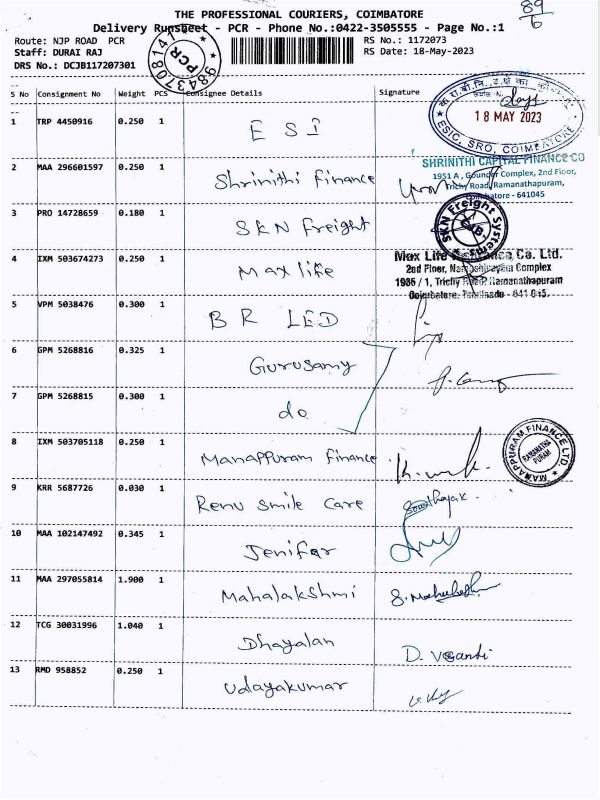 THE PROFESSIONAL COURIERS, COIMBATORE
89/6
Delivery Runsheet - PCR - Phone No.:0422-3505555 - Page No.:1
Route: NJP ROAD PCR
RS No.: 1172073
Staff: DURAI RAJ
RS Date: 18-May-2023
DRS No.: DCJB117207301
PCR
9843708147
S No Consignment No Weight PCS Consignee Details Signature
1 TRP 4450916 0.250 1 E S I
18 MAY 2023
ESIC, SRO, COIMBATORE
2 MAA 296601597 0.250 1 Shrinithi finance
SHRINITHI CAPITAL FINANCE CO
1951 A, Gounder Complex, 2nd Floor,
Trichy Road, Ramanathapuram,
Coimbatore - 641045
3 PRO 14728659 0.180 1 SKN Freight
SKN Freight Systems
4 IXM 503674273 0.250 1 Max life
Max Life Insurance Co. Ltd.
2nd Floor, Complex
1986 / 1, Trichy Road Ramanathapuram
Coimbatore, Tamilnadu - 641 045.
5 VPM 5038476 0.300 1 B R LED
6 GPM 5268816 0.325 1 Gurusamy
7 GPM 5268815 0.300 1 do
8 IXM 503705118 0.250 1 Manappuram finance
MANAPPURAM FINANCE LTD
RAMANATHA
PURAM
9 KRR 5687726 0.030 1 Renu smile care
10 MAA 102147492 0.345 1 Jenifar
11 MAA 297055814 1.900 1 Mahalakshmi
12 TCG 30031996 1.040 1 Dhayalan
13 RMD 958852 0.250 1 Udayakumar